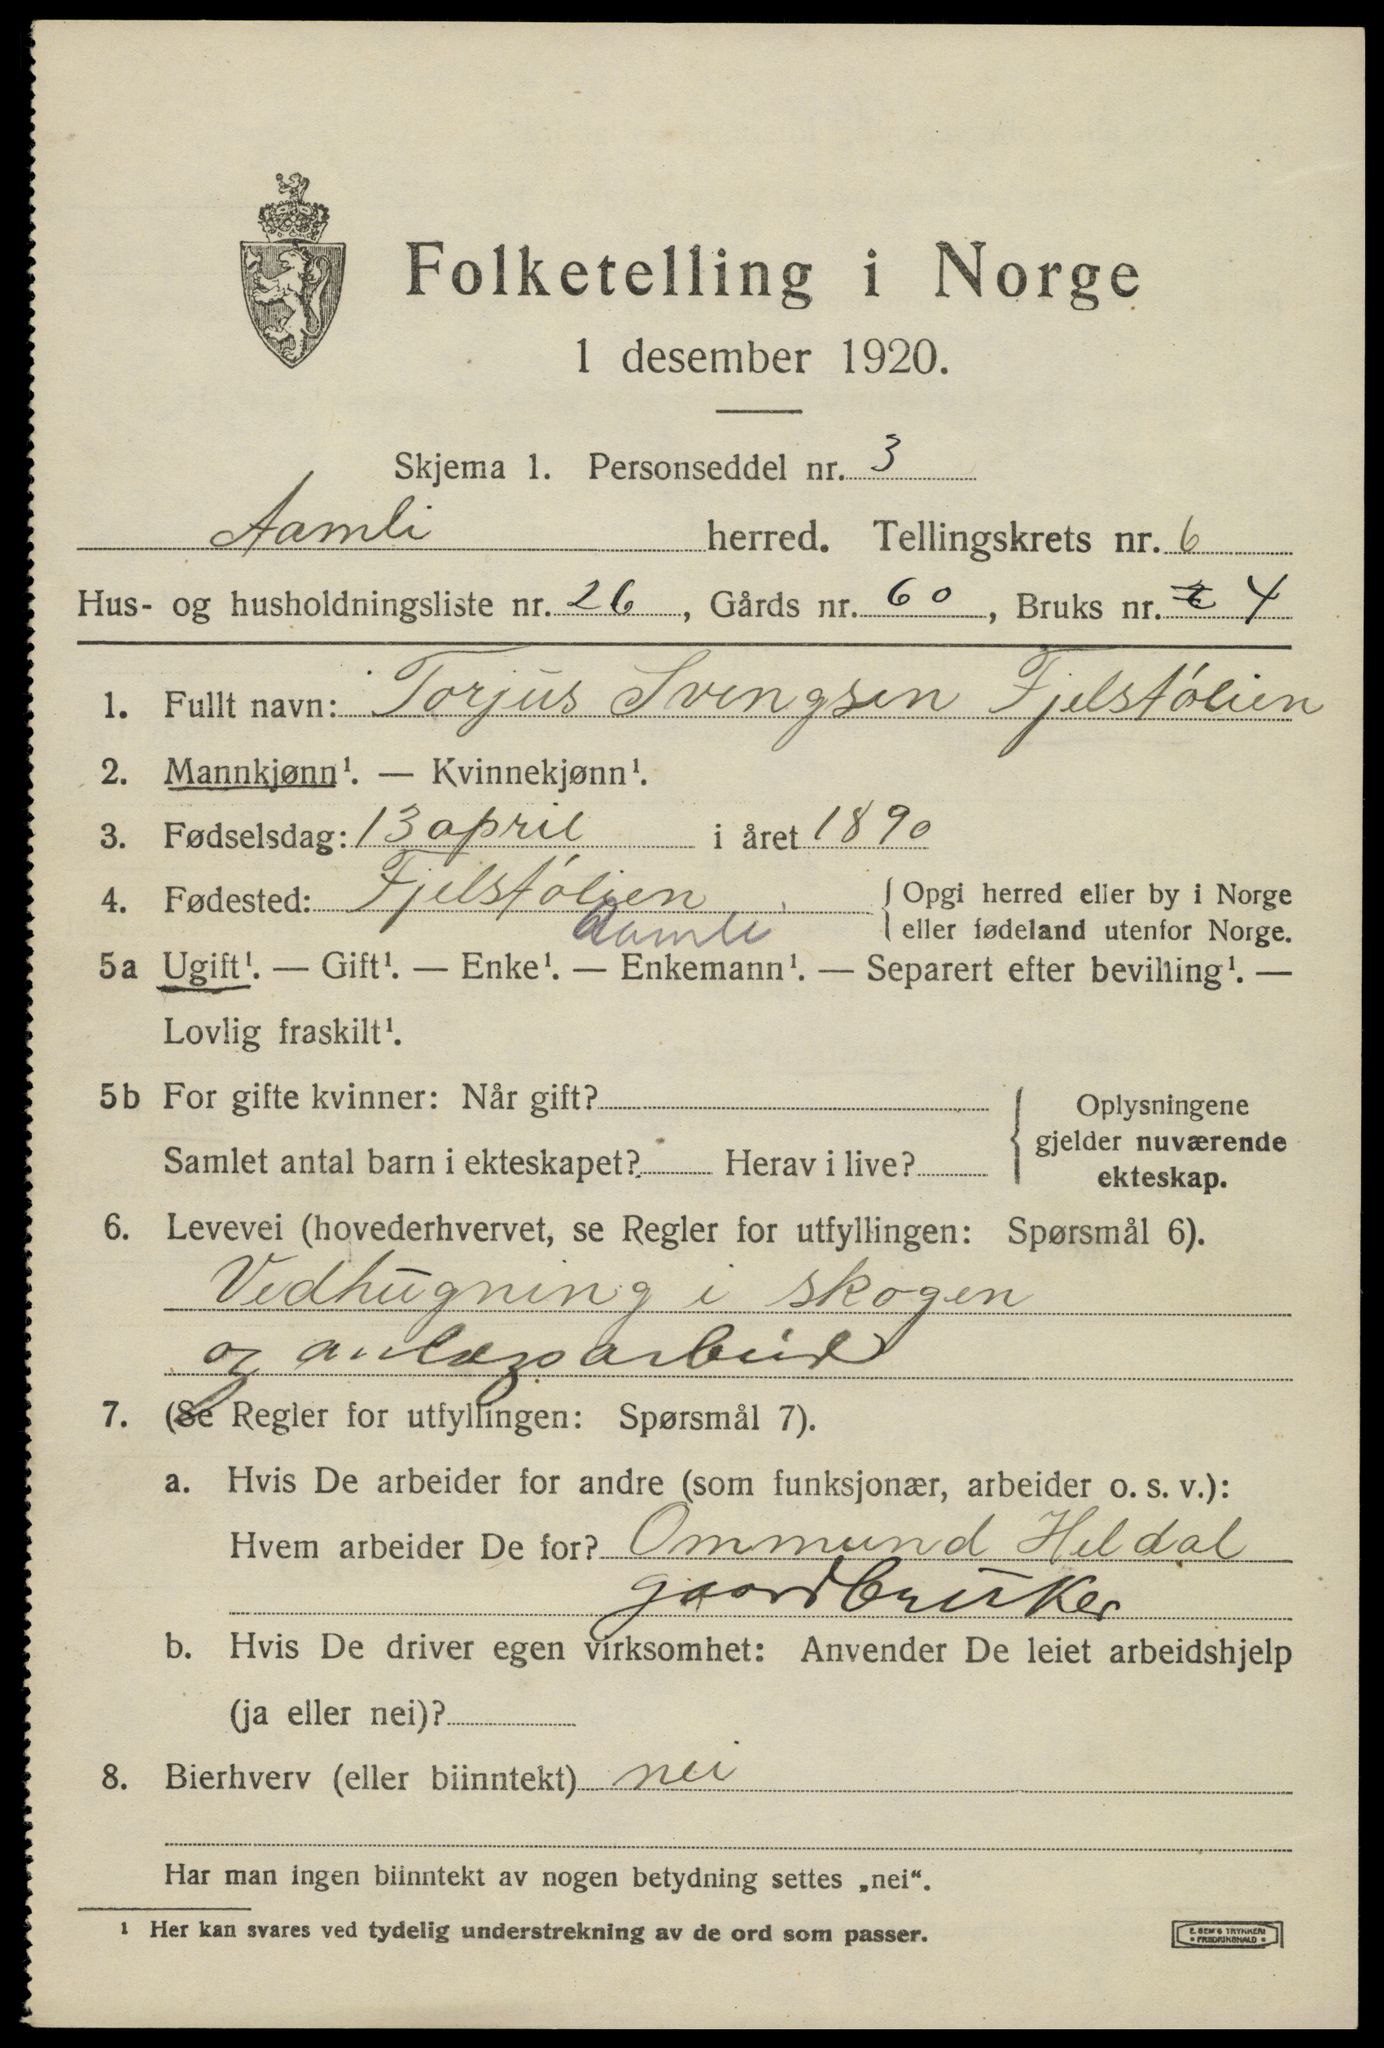 Folketelling i Norge
1 desember 1920.
Skjema 1. Personseddel nr. 3
Aamli herred. Tellingskrets nr. 6
Hus- og husholdningsliste nr. 26, Gårds nr. 60, Bruks nr. 4
1. Fullt navn: Torjus Svengsen Fjelstølien
2. Mannkjønn¹. — Kvinnekjønn¹.
3. Fødselsdag: 13 april i året 1890
4. Fødested: Fjelstølien { Opgi herred eller by i Norge
Aamli eller fødeland utenfor Norge.
5a Ugift¹. — Gift¹. — Enke¹. — Enkemann¹. — Separert efter bevilling¹. —
Lovlig fraskilt¹.
5b For gifte kvinner: Når gift?
Samlet antal barn i ekteskapet? Herav i live?
{ Oplysningene
gjelder nuværende
ekteskap.
6. Levevei (hovederhvervet, se Regler for utfyllingen: Spørsmål 6).
Vedhugning i skogen
og anlægsarbeid
7. (Se Regler for utfyllingen: Spørsmål 7).
a. Hvis De arbeider for andre (som funksjonær, arbeider o. s. v.):
Hvem arbeider De for? Ommund Heldal
gaardbruker
b. Hvis De driver egen virksomhet: Anvender De leiet arbeidshjelp
(ja eller nei)?
8. Bierhverv (eller biinntekt) nei
Har man ingen biinntekt av nogen betydning settes „nei“.
¹ Her kan svares ved tydelig understrekning av de ord som passer.
E. SEM'S TRYKKERI
• FREDRIKSHALD •